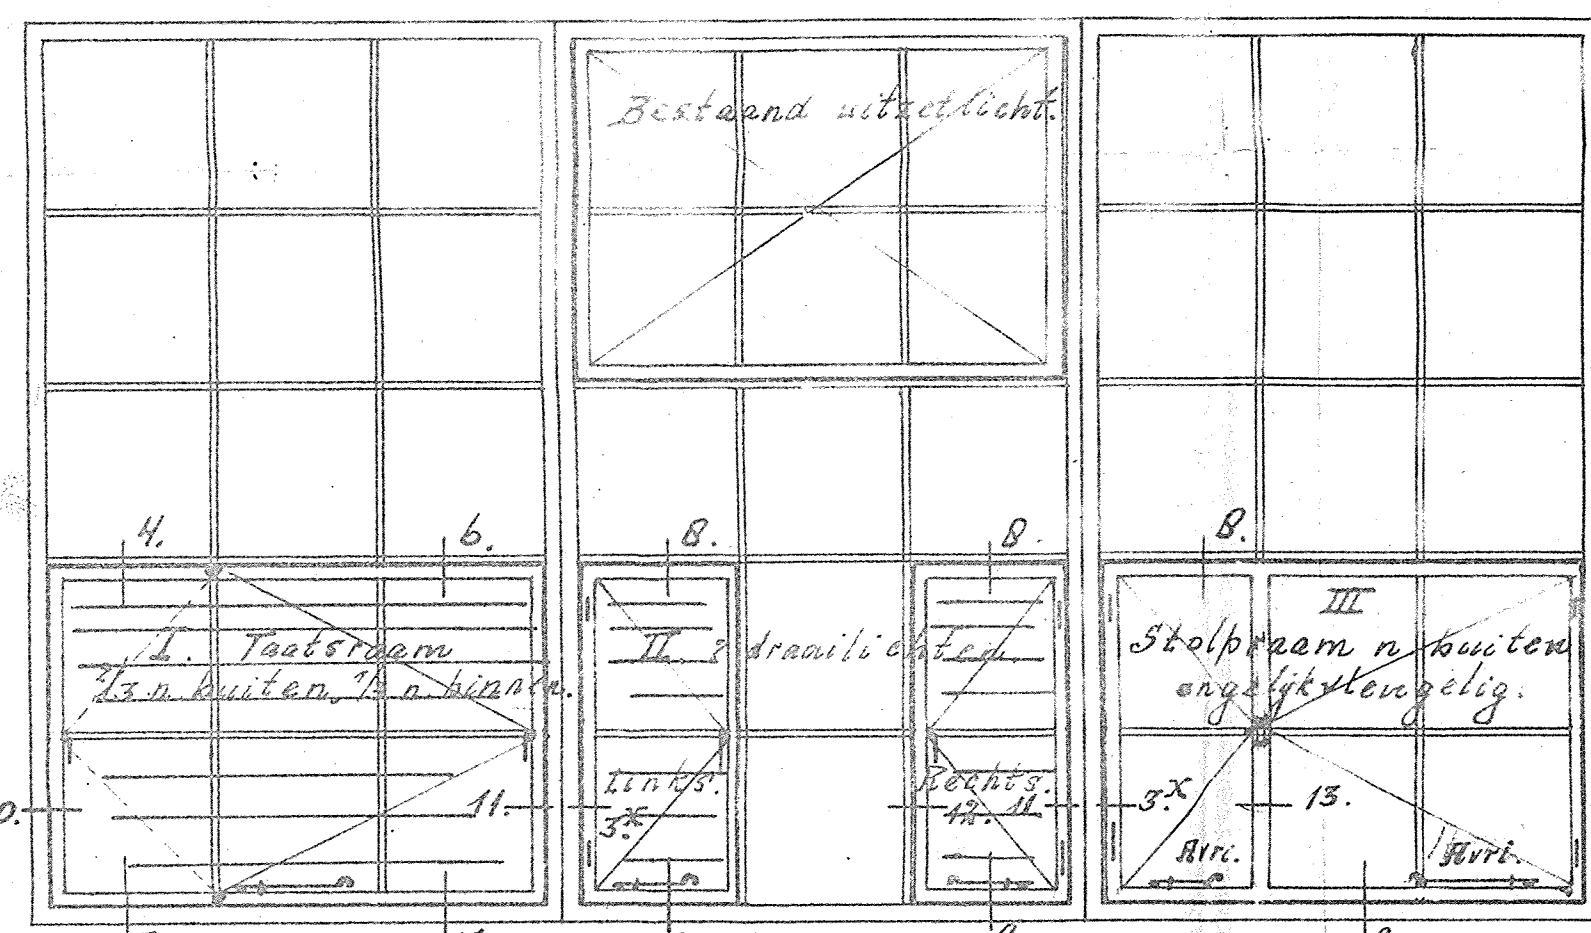 Bestaand uitzetlicht.
4.
6.
8.
8.
8.
I. Taatsraam
2/3 n. buiten, 1/3 n. binnen.
II 2 draailichten.
III
Stolpraam n buiten
ongelijkvleugelig.
Links.
Rechts.
11.
3.x
12.
11
3.x
13.
Avri.
Avri.